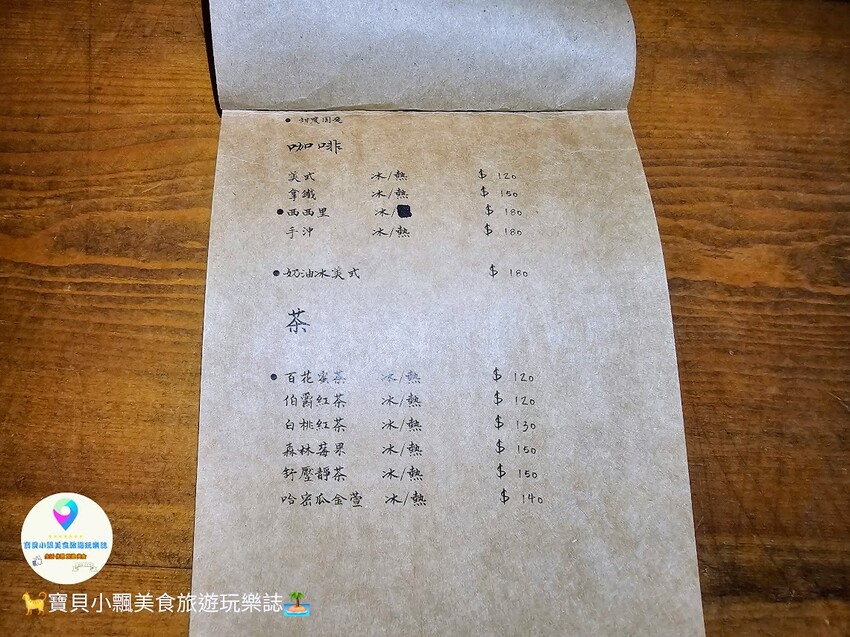 ● 甜度固定
咖啡
美式 冰/熱 $ 120
拿鐵 冰/熱 $ 150
● 西西里 冰/ $ 180
手沖 冰/熱 $ 180
● 奶油冰美式 $ 180
茶
● 百花蜜茶 冰/熱 $ 120
伯爵紅茶 冰/熱 $ 120
白桃紅茶 冰/熱 $ 130
森林莓果 冰/熱 $ 150
舒壓靜茶 冰/熱 $ 150
哈密瓜金萱 冰/熱 $ 140
寶貝小飄美食旅遊玩樂誌
寶貝小飄美食旅遊玩樂誌